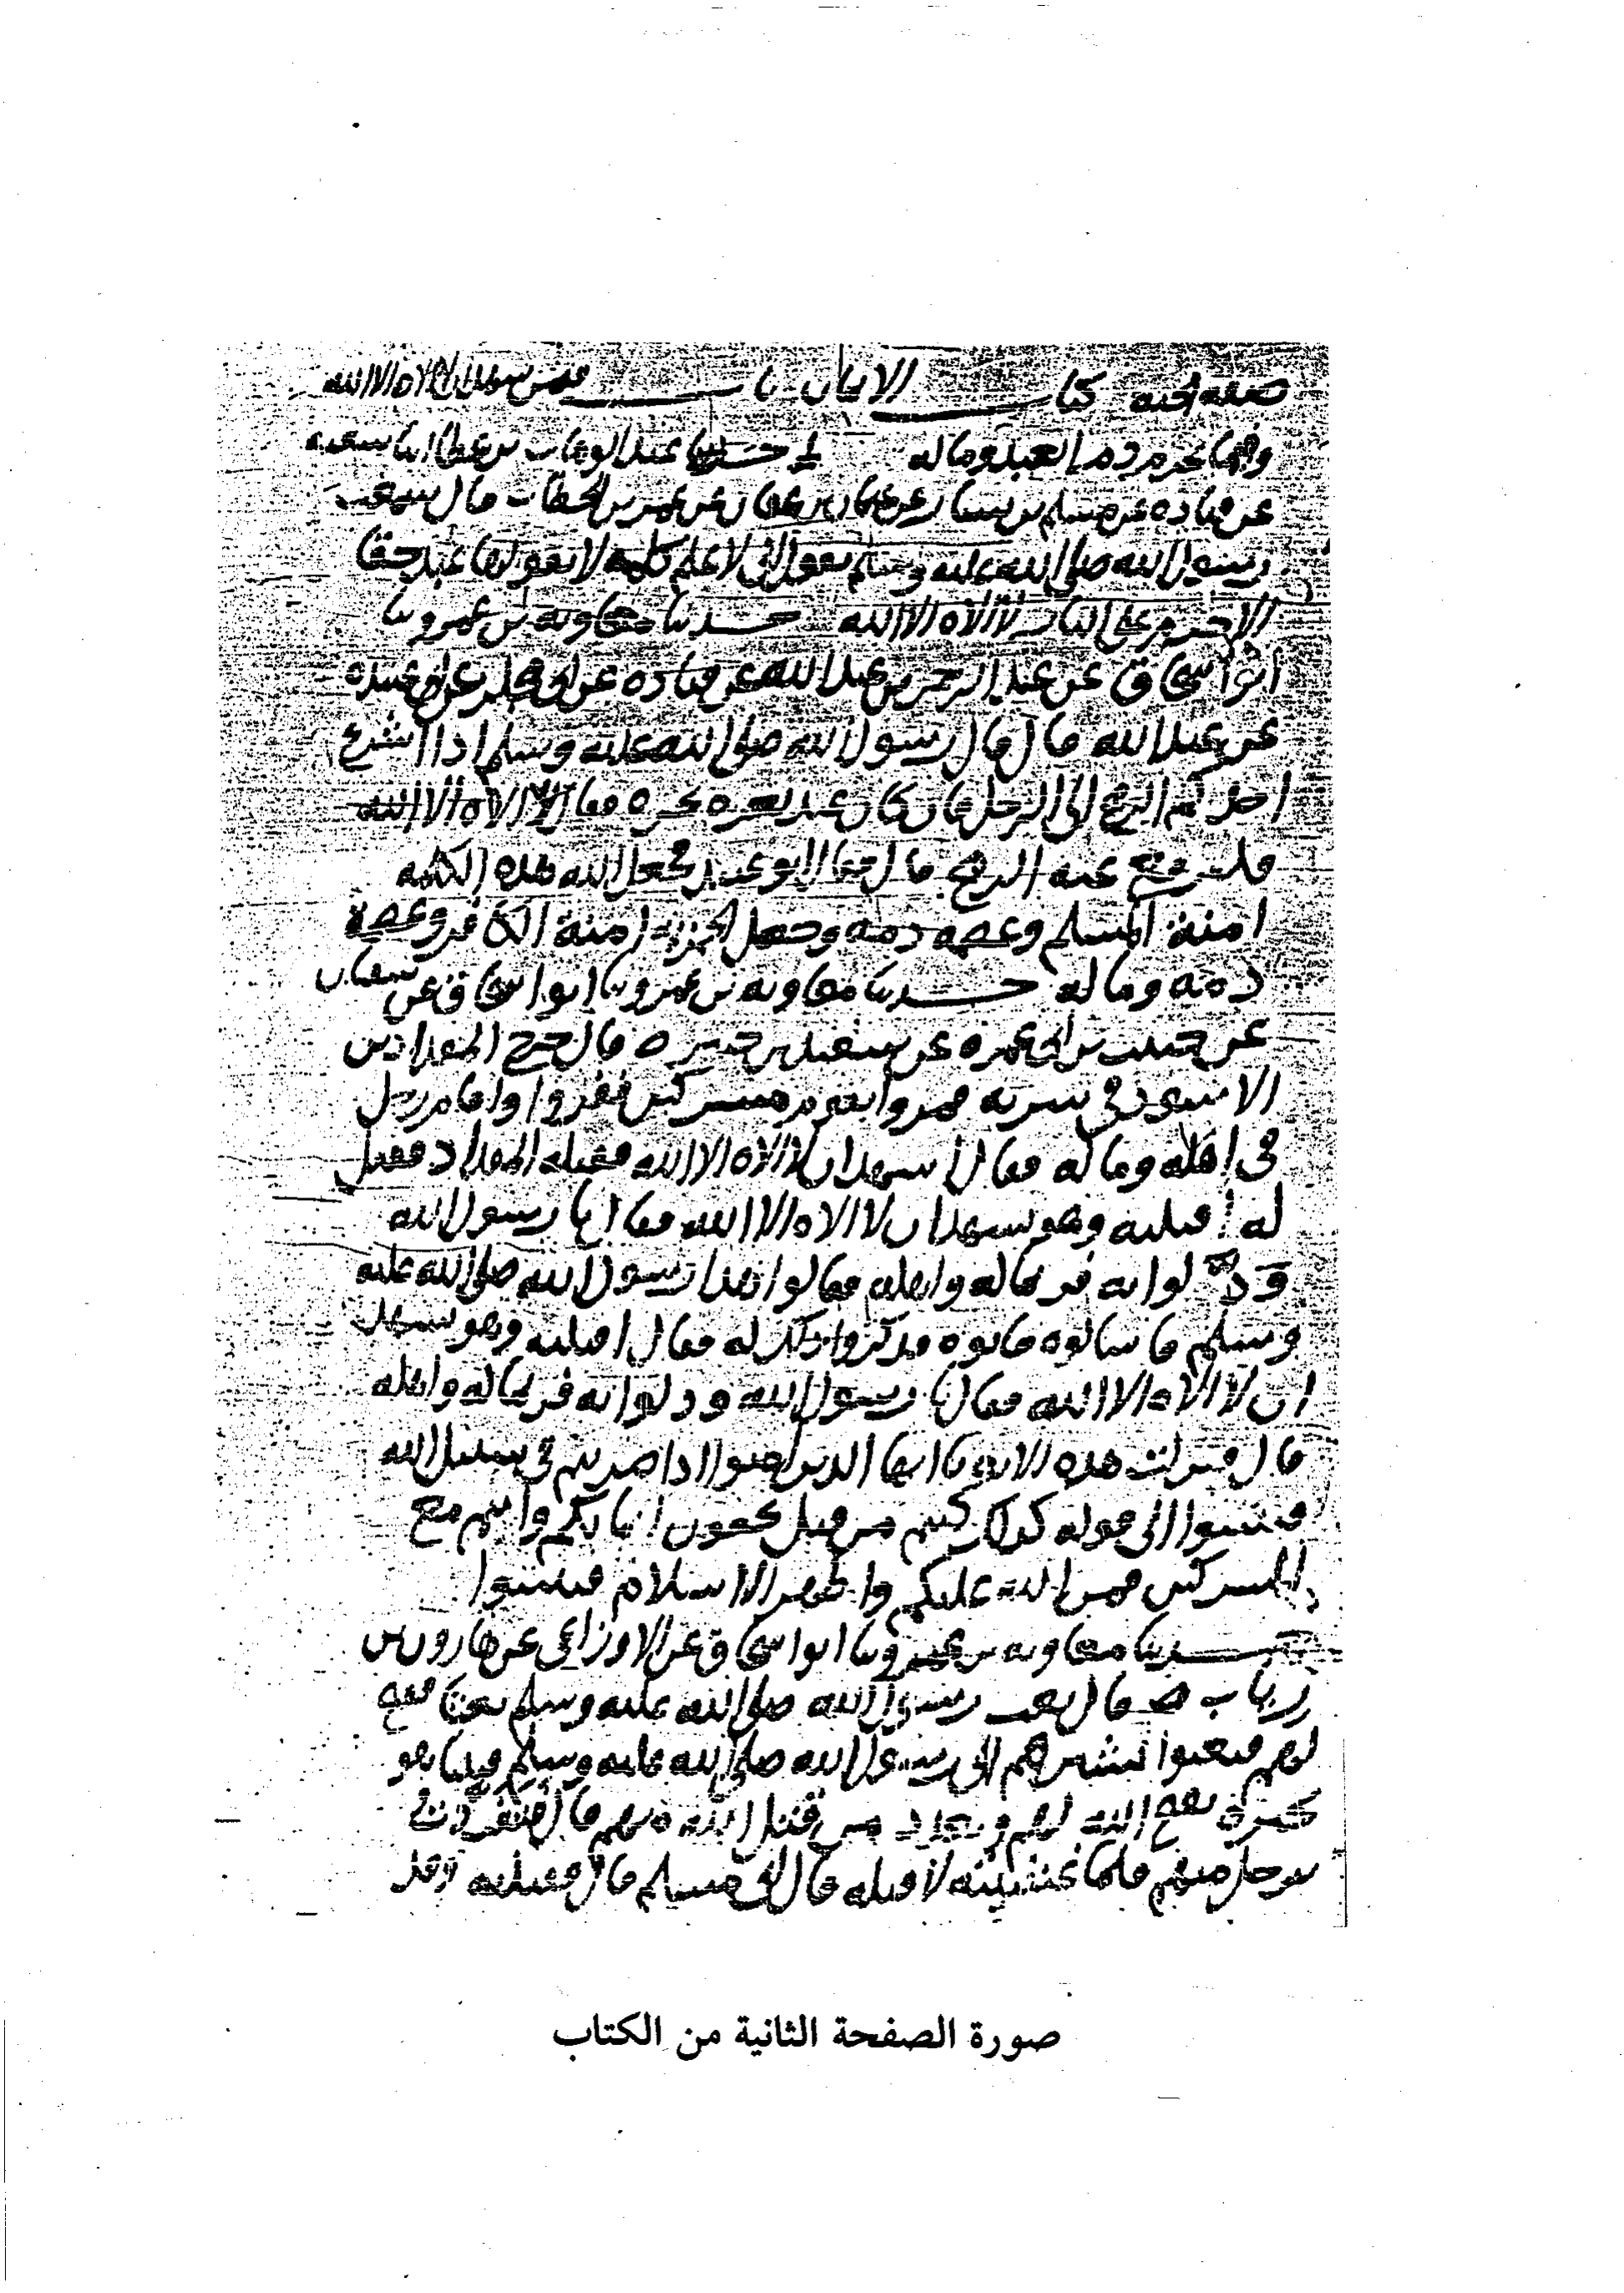 صفه الجنه كتاب الايمان باب فيمن شهد ان لا الاه الا الله
وفيما يحرم دم العبد وماله حدثنا عبد الوهاب بن عطا انبا سعيد
عن قتاده عن مسلم بن يسار عن حمران بن عفان عن عمر بن الخطاب قال سمعت
رسول الله صلى الله عليه وسلم يقول اني لاعلم كلمه لا يقولها عبد حقا
الا حرم على النار لا الاه الا الله حدثنا معاويه بن عمرو ثنا
ابو اسحاق عن عبد الرحمن بن عبد الله عن قتاده عن ابي مجلز عن ابي عبيده
عن عبد الله قال قال رسول الله صلى الله عليه وسلم اذا اشرع
احدكم الرمح الى الرجل فان كان عند ثغره نحره فقال لا الاه الا الله
فليرفع عنه الرمح قال فقال ابو عبد فجعل الله هذه الكلمه
امنة المسلم وعصمه دمه وجعل الجزيه امنة الكافر وعصمة
دمه وماله حدثنا معاويه بن عمرو ثنا ابو اسحاق عن سفيان
عن حبيب بن ابي عمره عن سعيد بن جبير قال خرج المقداد بن
الاسود في سريه فمروا بقوم مشركين ففروا واقام رجل
في اهله وماله فقال اشهد ان لا الاه الا الله فقتله المقداد فقيل
له اقتلته وهو يشهد ان لا الاه الا الله فقال يا رسول الله
ود لو انه فر بماله واهله فقالوا هذا رسول الله صلى الله عليه
وسلم فاسالوه فاتوه فذكروا ذلك له فقال اقتلته وهو يشهد
ان لا الاه الا الله فقال يا رسول الله ود لو انه فر بماله واهله
قال فنزلت هذه الايه يا ايها الذين امنوا اذا ضربتم في سبيل الله
فتبينوا الى قوله كذلك كنتم من قبل تخفون ايمانكم وانتم مع
المشركين فمن الله عليكم واظهر الاسلام فتبينوا
حدثنا معاويه بن عمرو ثنا ابو اسحاق عن الاوزاعي عن هارون بن
رياب قال بعث رسول الله صلى الله عليه وسلم بعثا ففتح
لهم فبعثوا بشيرهم الى رسول الله صلى الله عليه وسلم فبينا هو
يخبره بفتح الله لهم وبعدد من قتل الله منهم قال فتفردت
برجل منهم فلما غشيته لاقتله قال اني مسلم قال فقتلته وقد
صورة الصفحة الثانية من الكتاب